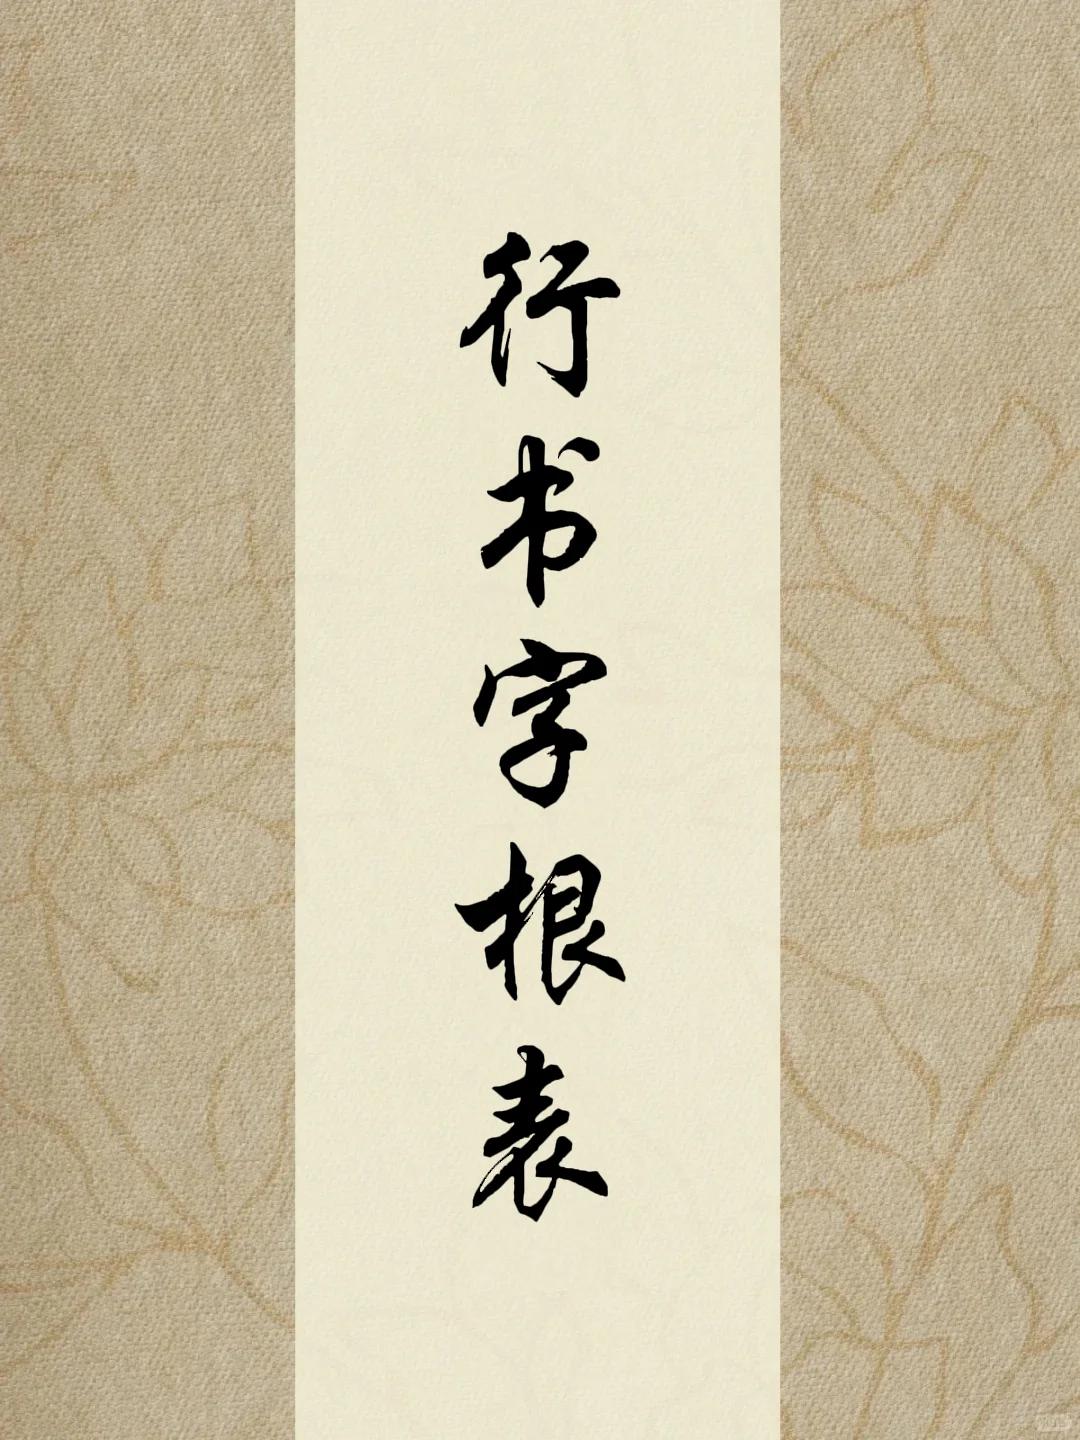 行书字根表